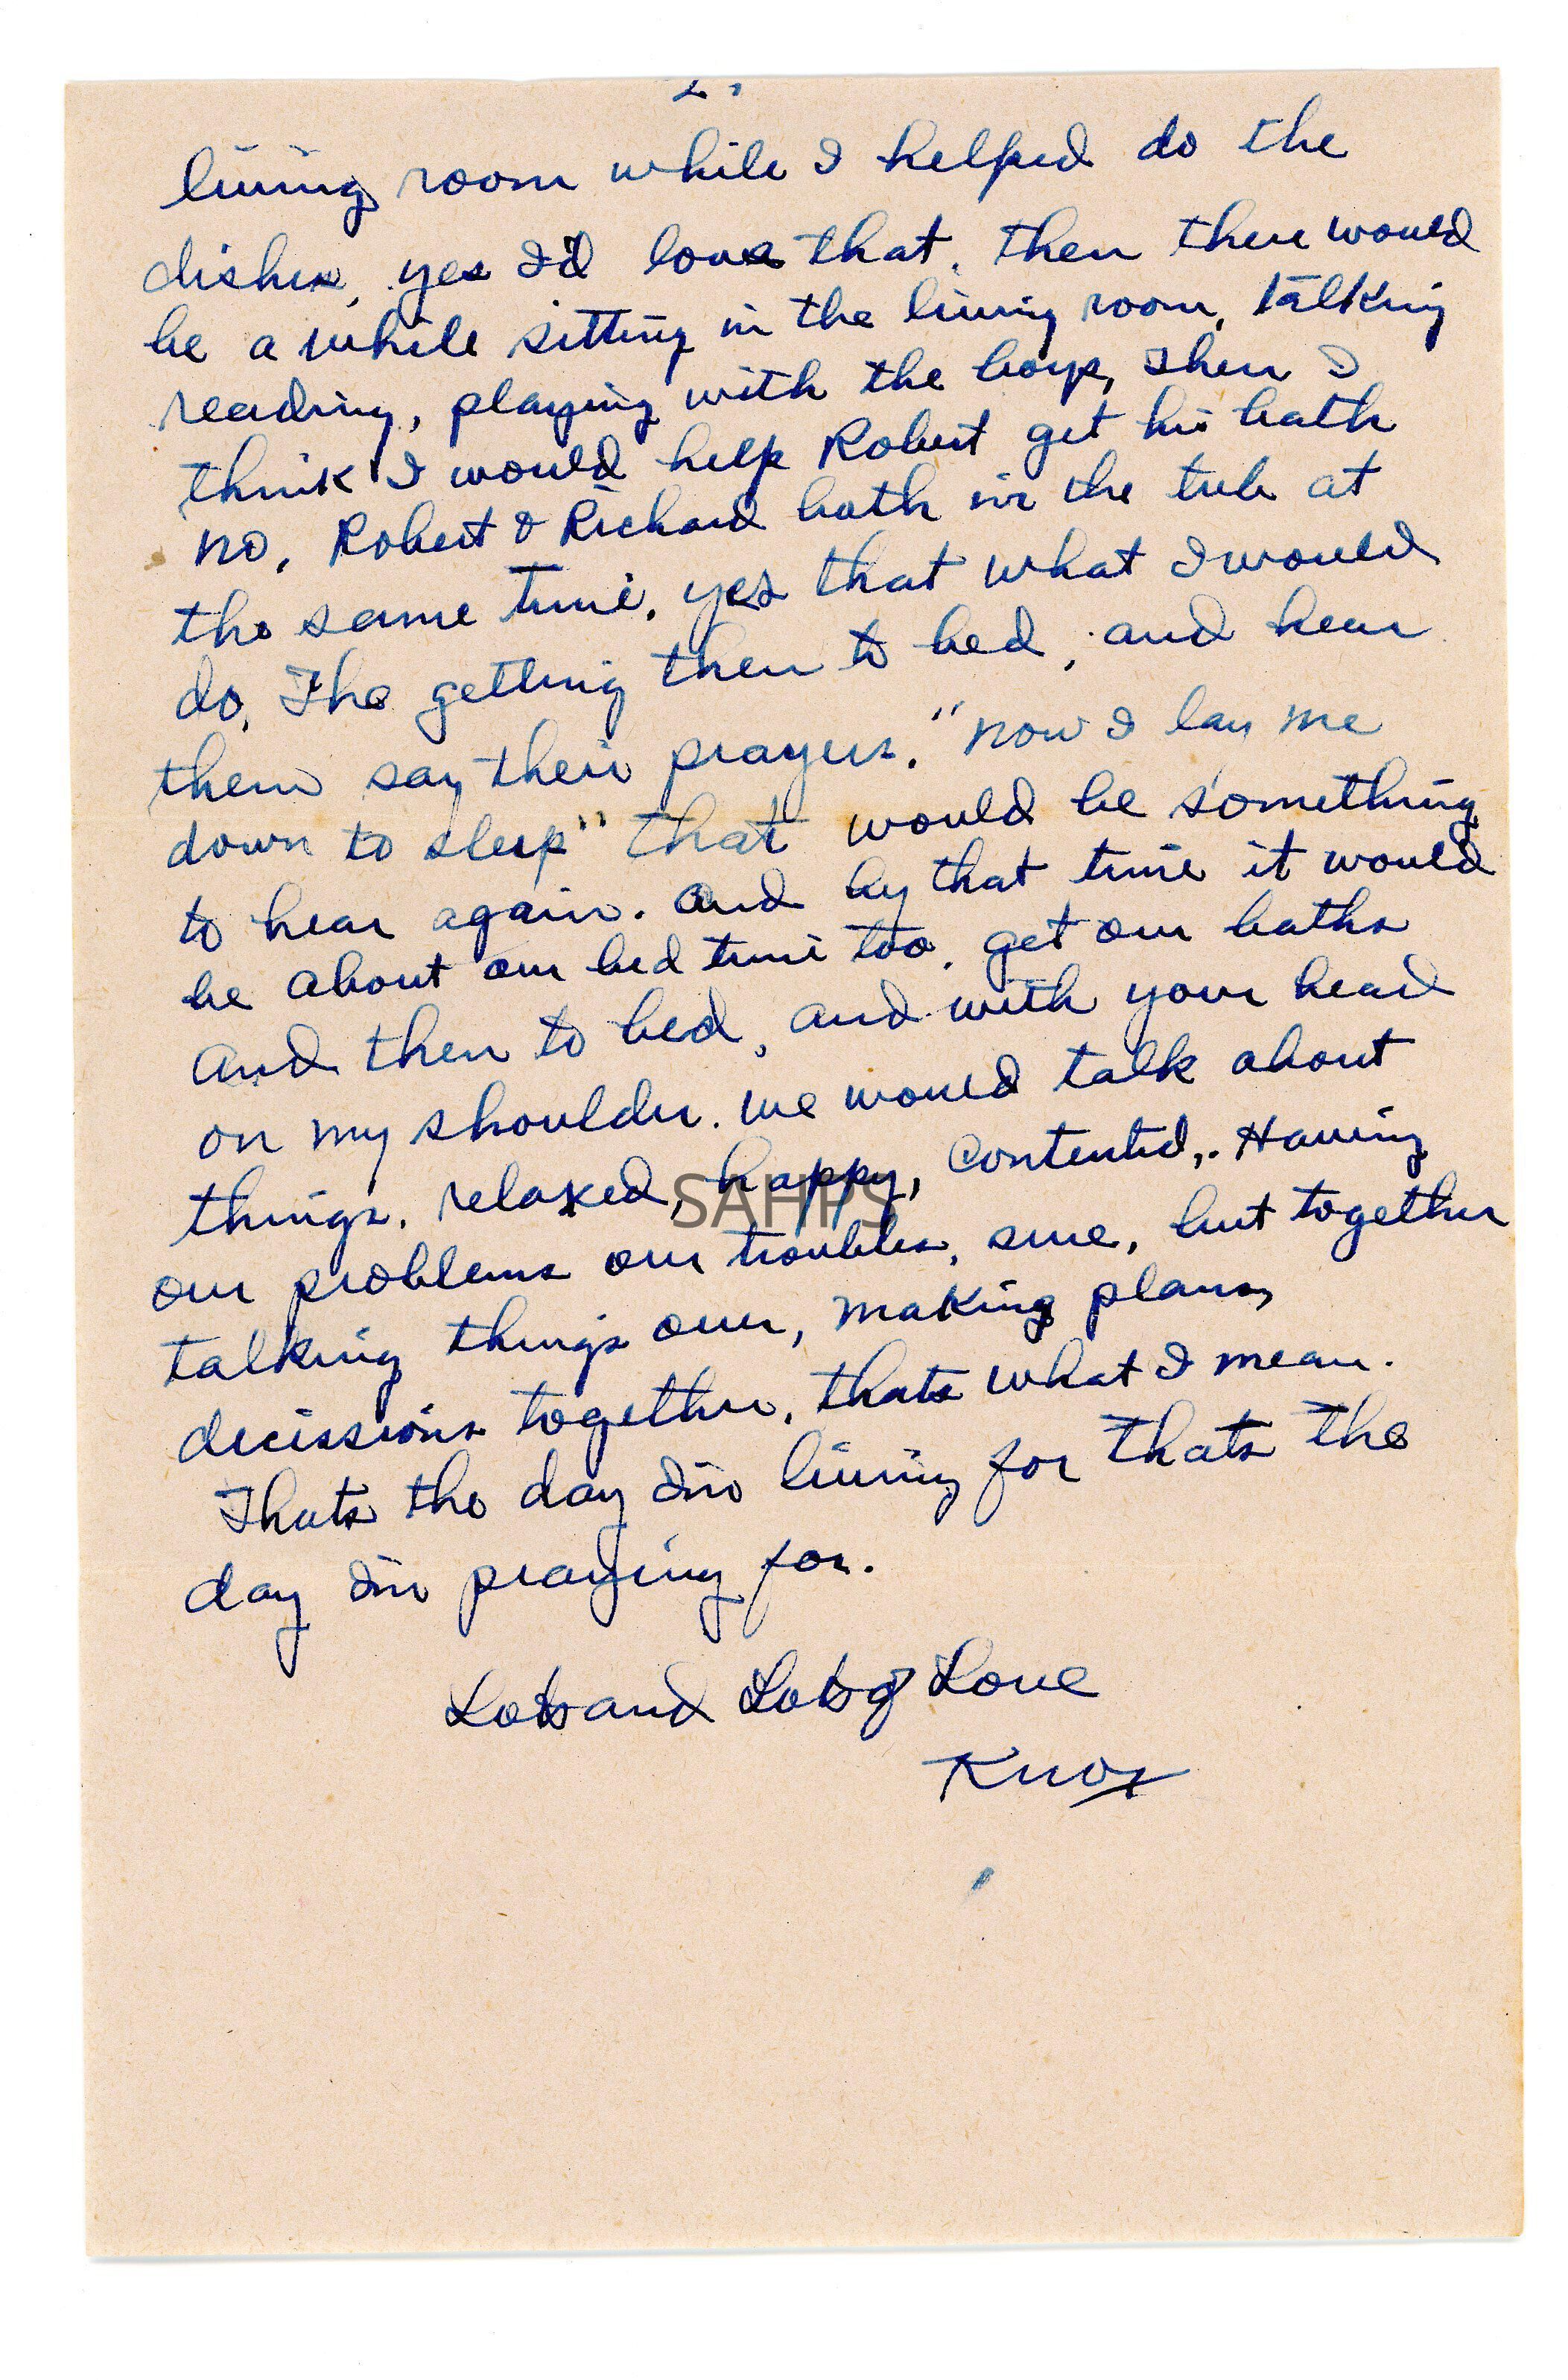 2,
living room while I helped do the
dishes, yes I'd love that, then there would
be a while sitting in the living room, talking
reading, playing with the boys, then I
think I would help Robert get his bath
no, Robert & Richard both in the tub at
the same time, yes that what I would
do, The getting then to bed, and hear
them say their prayers. "now I lay me
down to sleep" that would be something
to hear again. and by that time it would
be about our bed time too, get our baths
and then to bed, and with your head
on my shoulder. we would talk about
things, relaxed, happy, contented,. Having
SAHPS
our problems our troubles, sure, but together
talking things over, making plans,
decissions together, thats what I mean.
Thats the day Im living for thats the
day Im praying for.
Lots and Lots of Love
Knox